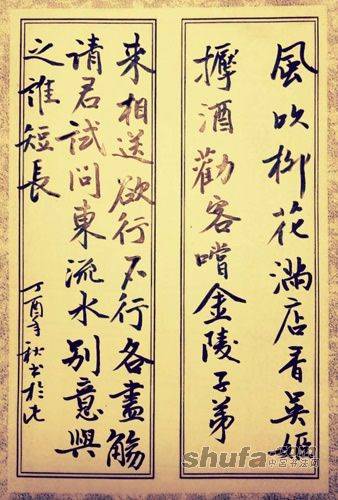 風吹柳花滿店香吳姬
壓酒勸客嚐金陵子弟
来相送欲行不行各盡觴
請君試問東流水別意與
之誰短長
丁酉年秋书於
shufa.com
中国书法网